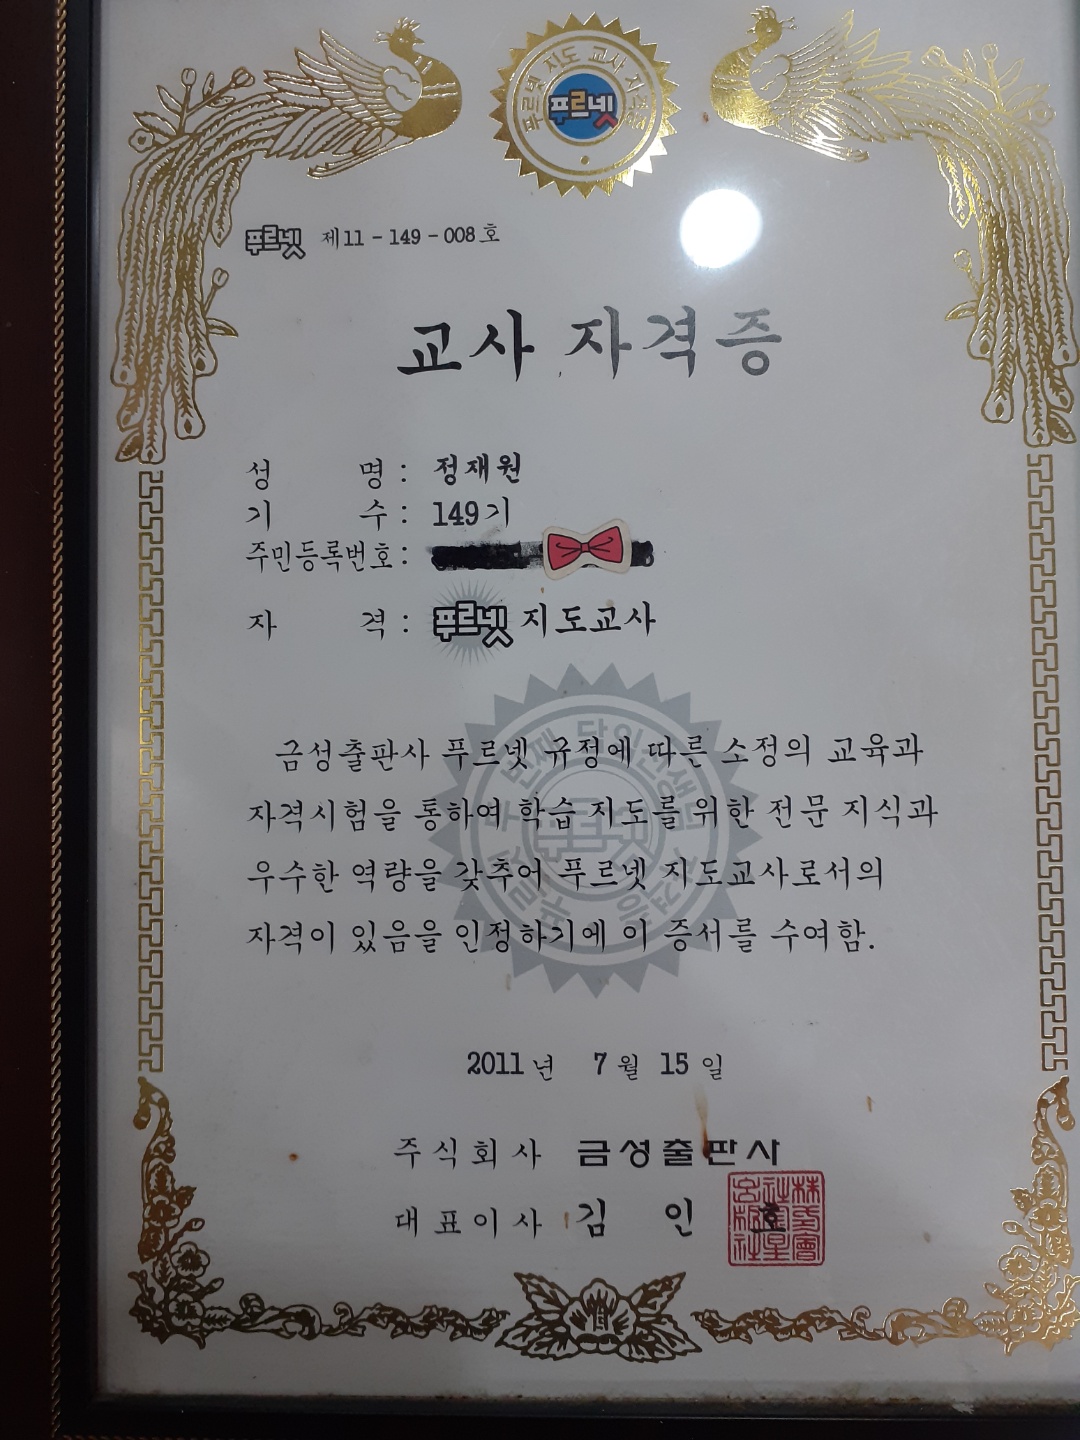 푸르넷 지도 교사 자격증
푸르넷
푸르넷 제11-149-008호
교사 자격증
성 명 : 정재원
기 수 : 149기
주민등록번호 :
자 격 : 푸르넷 지도교사
푸르넷
금성출판사 푸르넷 규정에 따른 소정의 교육과
자격시험을 통하여 학습 지도를 위한 전문 지식과
우수한 역량을 갖추어 푸르넷 지도교사로서의
자격이 있음을 인정하기에 이 증서를 수여함.
2011년 7월 15일
주식회사 금성출판사
대표이사 김 인 호